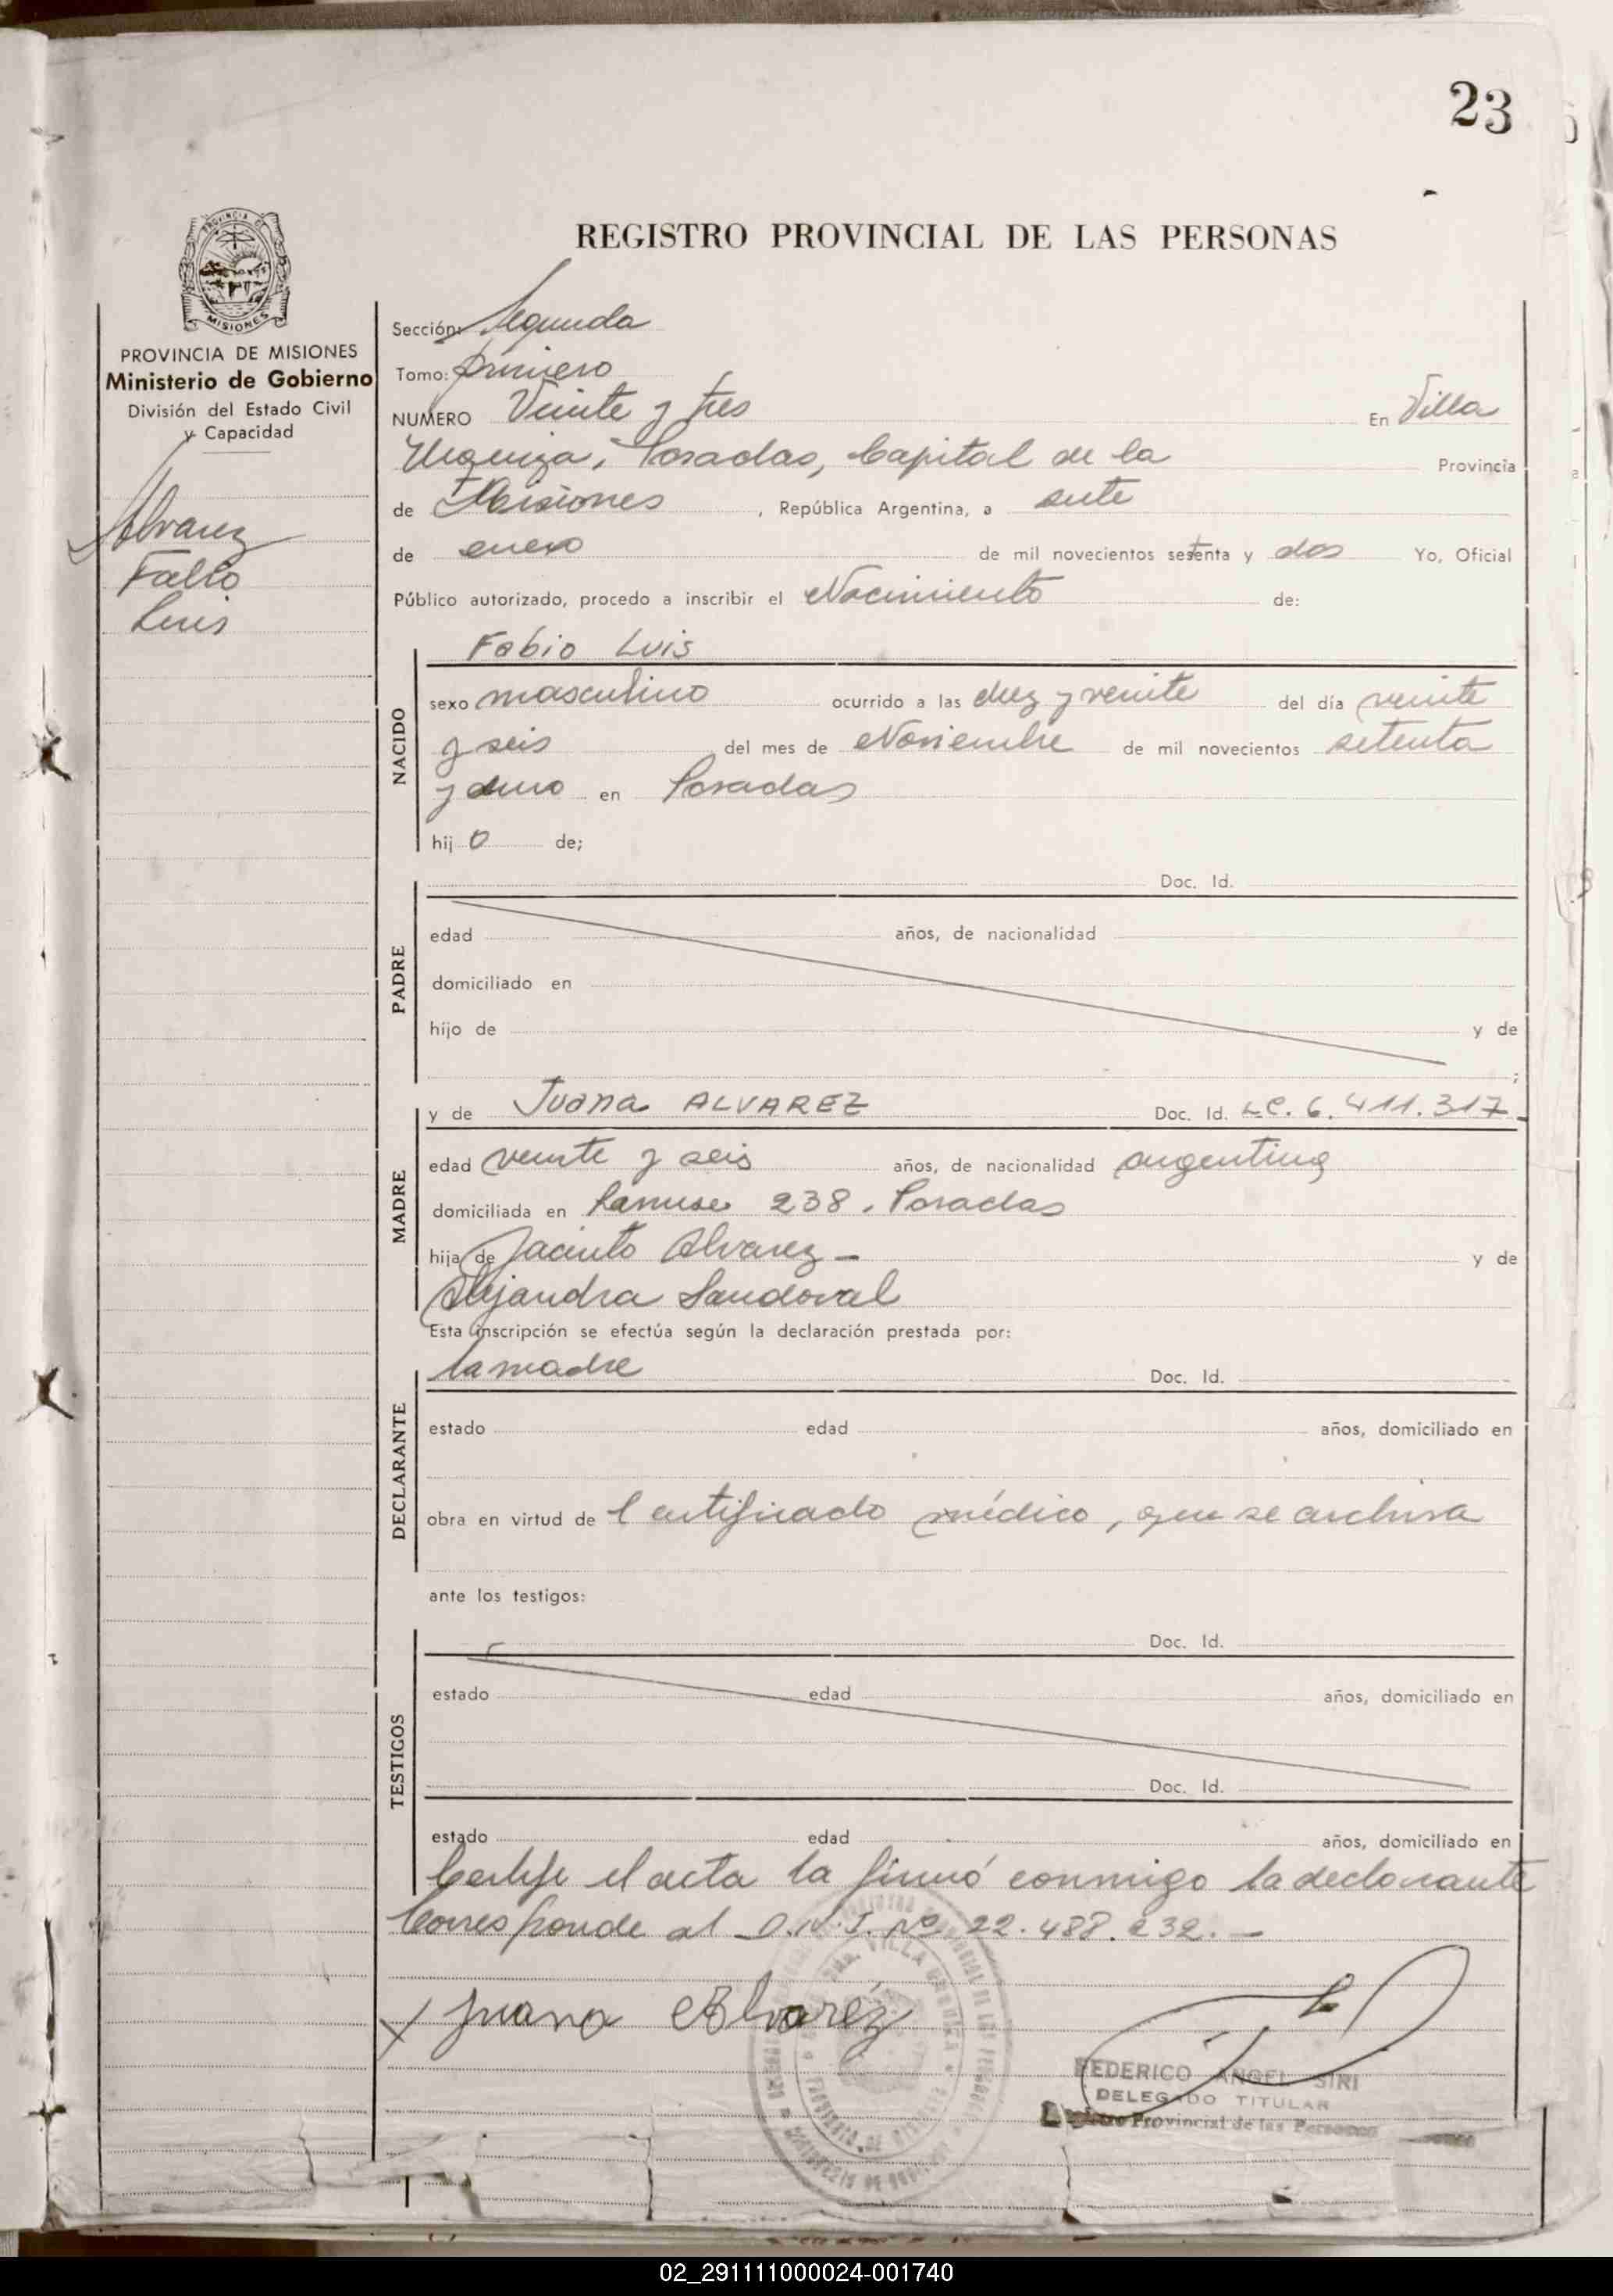 23
REGISTRO PROVINCIAL DE LAS PERSONAS
PROVINCIA DE MISIONES
Ministerio de Gobierno
División del Estado Civil
y Capacidad
Alvarez
Fabio
Luis
Sección: Segunda
Tomo: primero
NUMERO Veinte y tres En Villa
Urquiza, Posadas, Capital de la Provincia
de Misiones, República Argentina, a siete
de enero de mil novecientos setenta y dos Yo, Oficial
Público autorizado, procedo a inscribir el Nacimiento de:
Fabio Luis
NACIDO
sexo masculino ocurrido a las diez y veinte del día veinte
y seis del mes de Noviembre de mil novecientos setenta
y uno en Posadas
hijo de;
PADRE
Doc. Id.
edad años, de nacionalidad
domiciliado en
hijo de y de
;
MADRE
y de Juana ALVAREZ Doc. Id. LC. 6.411.317.
edad veinte y seis años, de nacionalidad argentina
domiciliada en Lanusse 238, Posadas
hija de Jacinto Alvarez - y de
Alejandra Sandoval
Esta inscripción se efectúa según la declaración prestada por:
DECLARANTE
la madre Doc. Id.
estado edad años, domiciliado en
obra en virtud de Certificado médico, que se archiva
ante los testigos:
TESTIGOS
Doc. Id.
estado edad años, domiciliado en
Doc. Id.
estado edad años, domiciliado en
el acta la firmó conmigo la declarante
Corresponde al D.N.I. Nº 22.488.232.-
x Juana Alvaréz
FEDERICO ANGEL SIRI
DELEGADO TITULAR
Provincial de las Personas
02_291111000024-001740